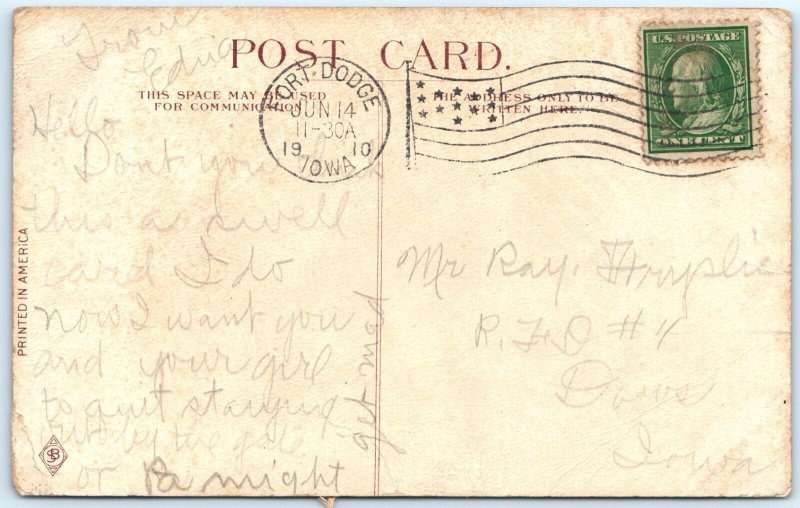 From
Edna
POST CARD.
THIS SPACE MAY BE USED
FOR COMMUNICATION
THE ADDRESS ONLY TO BE
WRITTEN HERE.
FORT DODGE
JUN 14
11-30A
19 10
IOWA
U.S. POSTAGE
ONE CENT
Hello
Dont you
this a swell
card I do
now I want you
and your girl
to quit staying
by the gate
or Pa might
get mad
Mr Ray.
R.F.D #4
Dows
Iowa
PRINTED IN AMERICA
SB